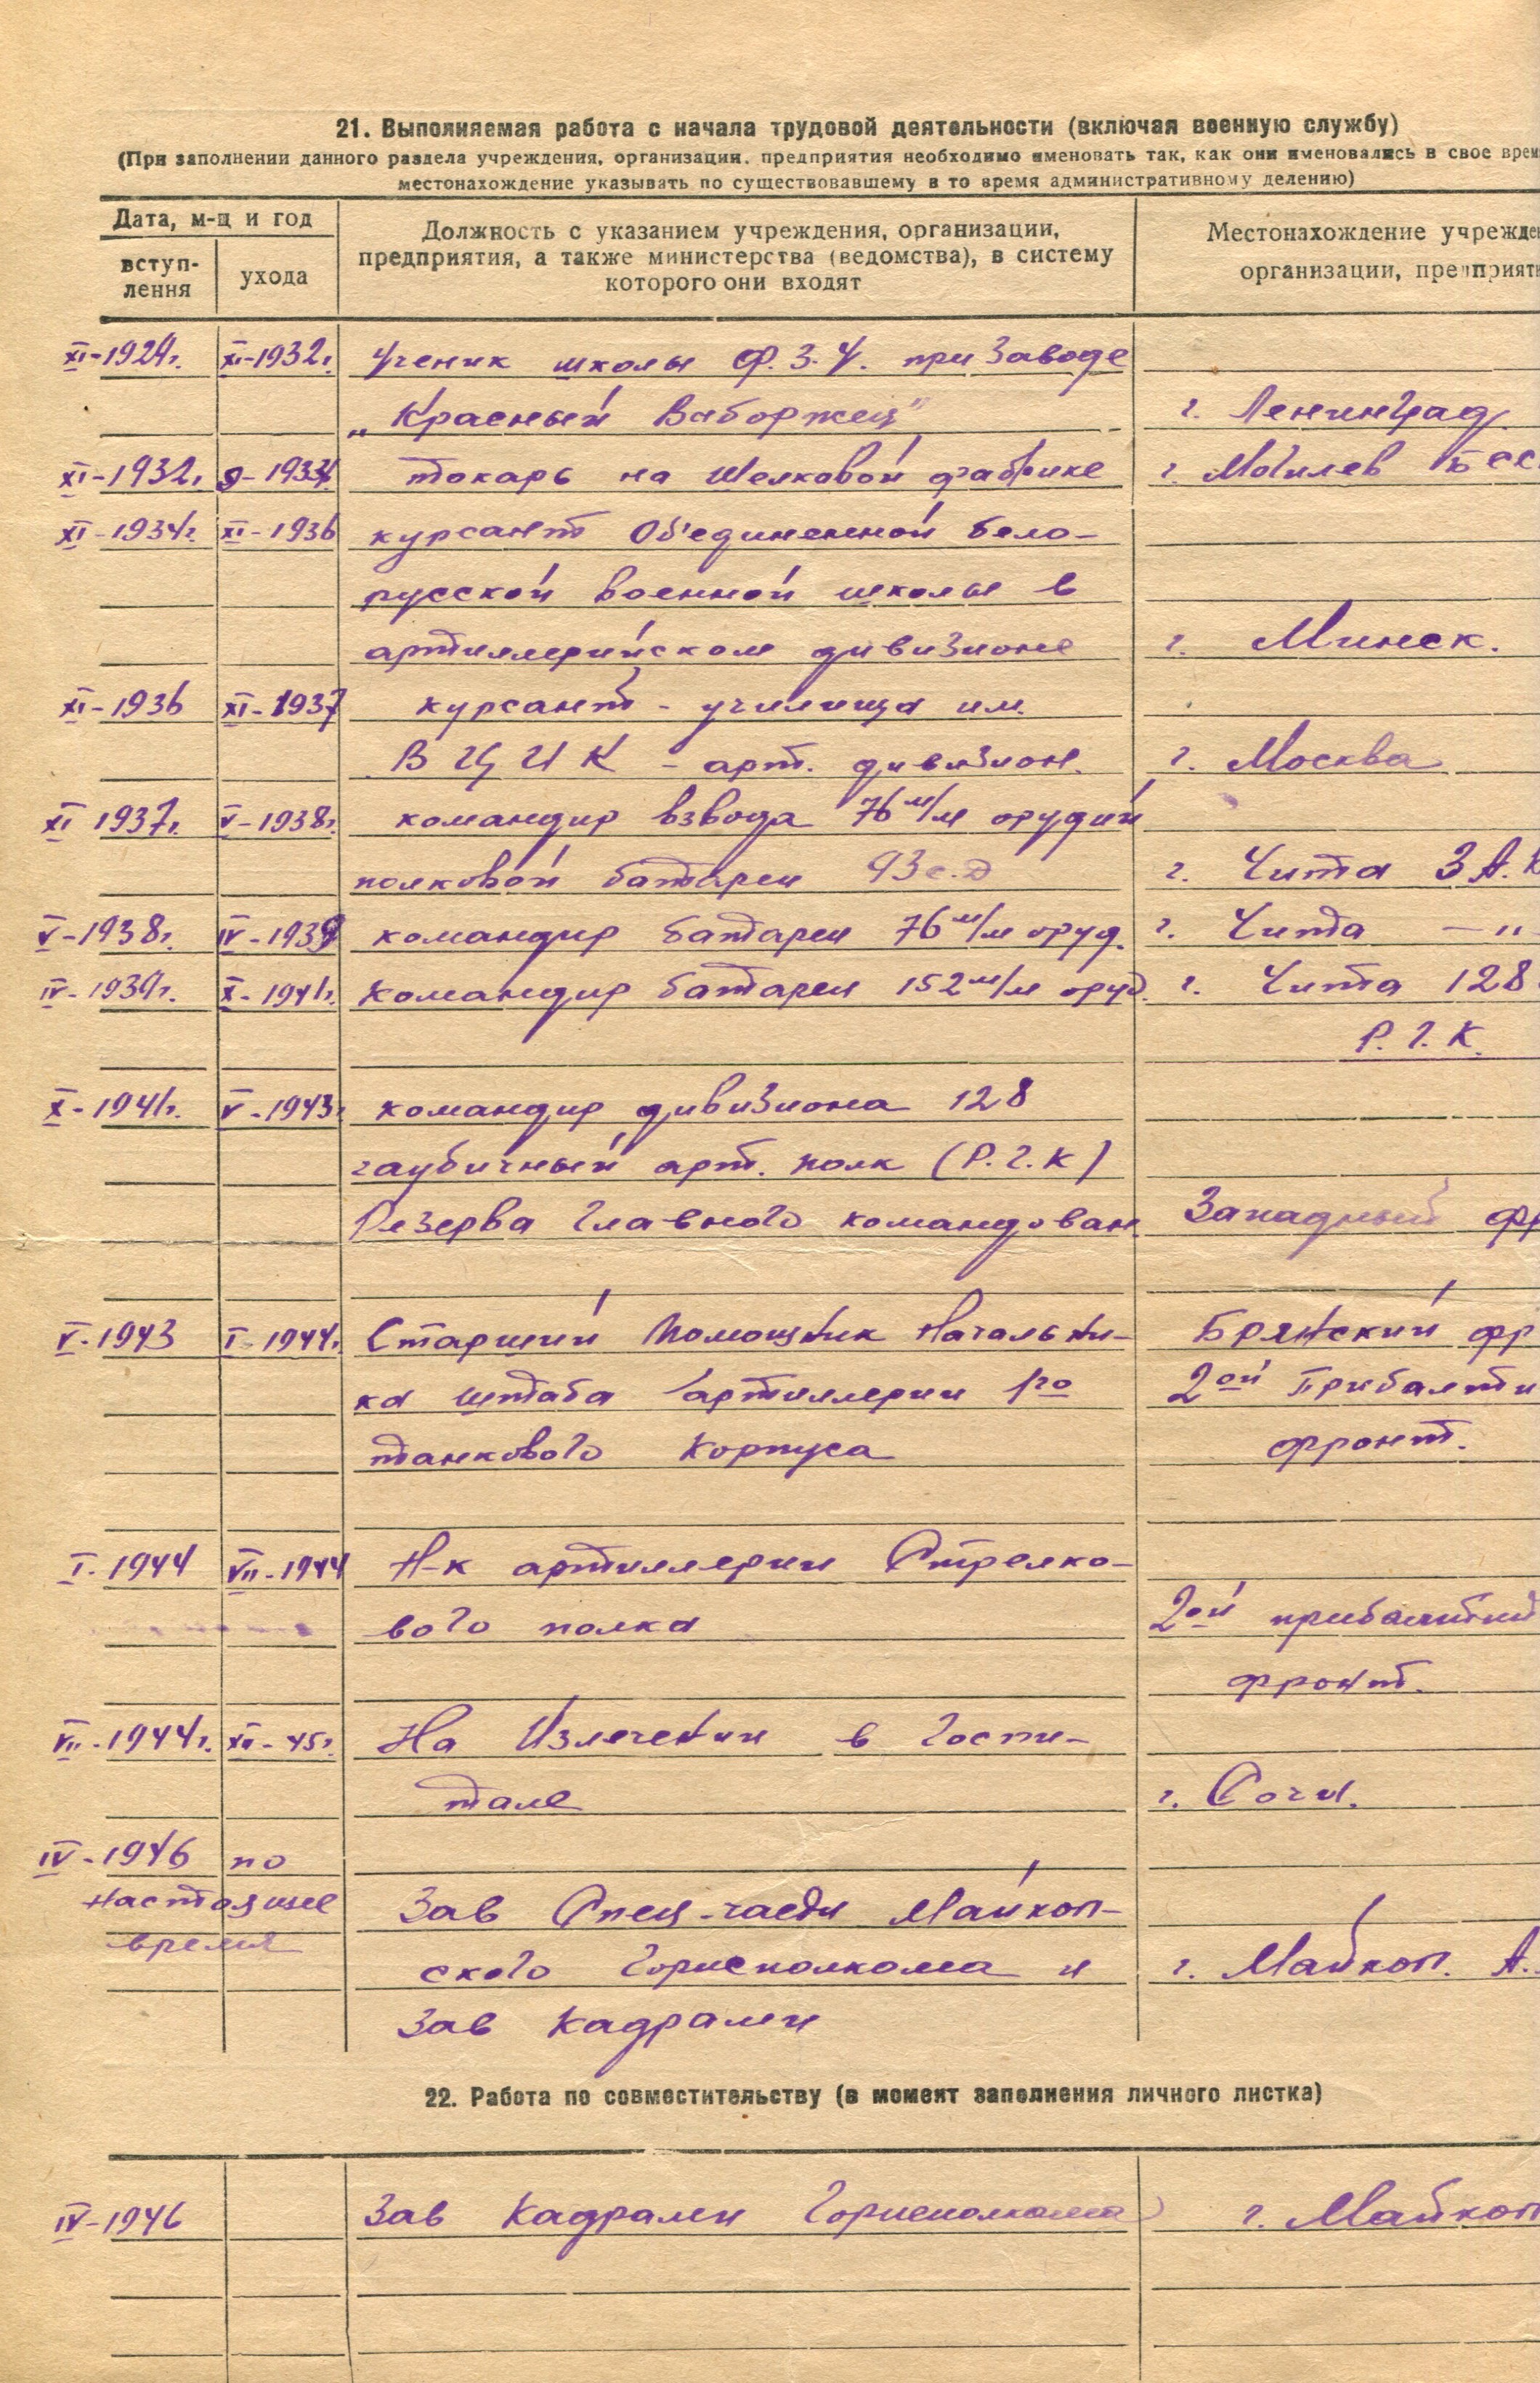 21. Выполняемая работа с начала трудовой деятельности (включая военную службу)
(При заполнении данного раздела учреждения, организации, предприятия необходимо именовать так, как они именовались в свое врем
местонахождение указывать по существовавшему в то время административному делению)
Дата, м-ц и год
вступ-
лення
ухода
Должность с указанием учреждения, организации,
предприятия, а также министерства (ведомства), в систему
которого они входят
Местонахождение учрежде
организации, предприят
XI-1929г. XI-1932г. Ученик школы Ф.З.У. при Заводе
„Красный Выборжец" г. Ленинград
XI-1932г. токарь на Шелковой фабрике г. Могилев БСС
XI-1934г. XI-1936 курсант Об'единенной Бело-
русской военной школы в
артиллерийском дивизионе г. Минск.
XI-1936 XI-1937 курсант - училища им.
ВЦИК - арт. дивизион. г. Москва
XI 1937г. V-1938г. командир взвода 76 м/м орудий
полковой батареи 93 с.д г. Чита З А.
V-1938г. IV-1939 командир батареи 76 м/м оруд. г. Чита — " —
IV-1939г. X-1941г. командир батареи 152 м/м оруд. г. Чита 128
Р.Г.К.
X-1941г. V-1943г командир дивизиона 128
гаубичный арт. полк (Р.Г.К)
Резерва Главного командован. Западный фр
V-1943 I-1944г. Старший Помощник Начальни-
ка штаба артиллерии 1го
танкового Корпуса
Брянский фр
2ой Прибалти
фронт.
I-1944 VII-1944 Н-к артиллерии Стрелко-
вого полка 2ой прибалтий
фронт.
VII-1944г. -45г. На Излечении в Госпи-
тале г. Сочи.
IV-1946 по
настоящее
время
Зав Спец-части Майкоп-
ского Горисполкома и г. Майкоп. А.
Зав Кадрами
22. Работа по совместительству (в момент заполнения личного листка)
IV-1946 Зав Кадрами Горисполкома г. Майкоп